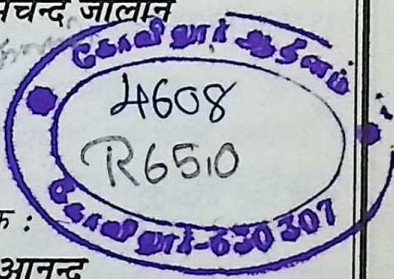 चन्द जालान
கோவிலூர் ஆதீனம்
4608
R6510
கோவிலூர்-630 307
क :
आनन्द